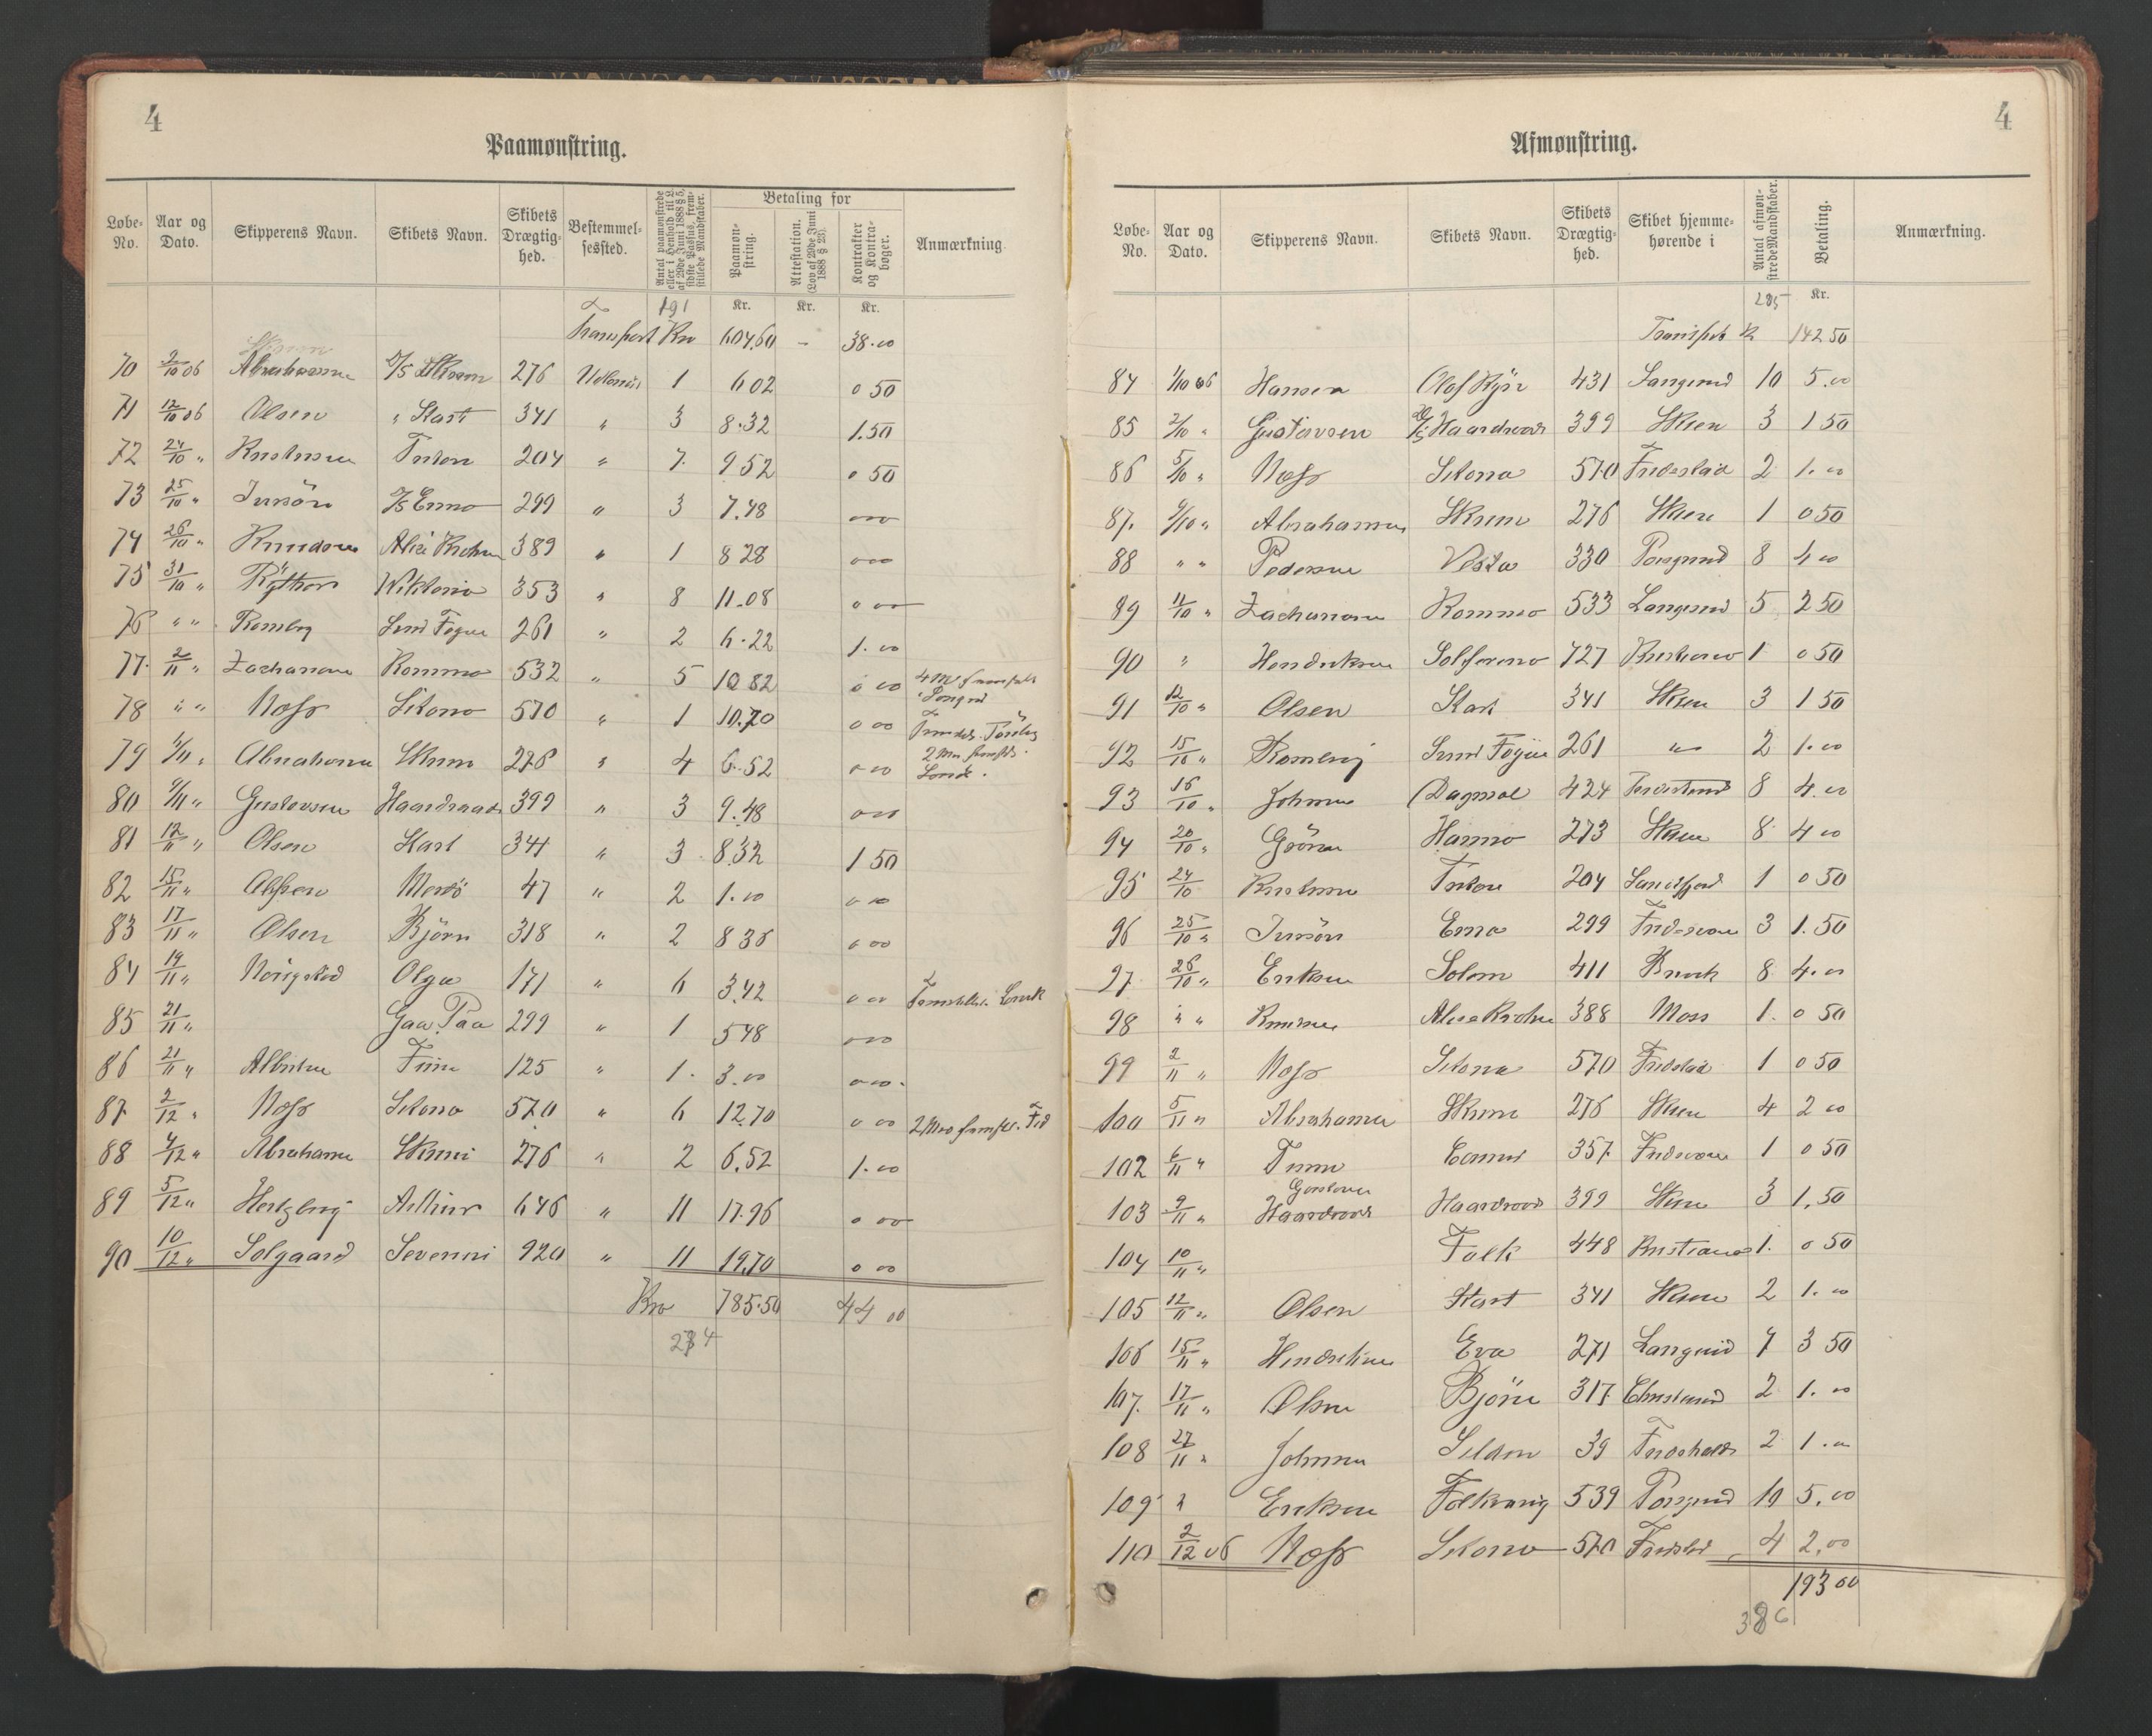 4
Paamønstring.
Løbe-No. Aar og Dato. Skipperens Navn. Skibets Navn. Skibets Drægtig-hed. Bestemmel-sessted. Antal paamønstrede eller i Henhold til L. af 29de Juni 1888 § 5, sidste Passus, frem-stillede Mandskaber. Betaling for Paamøn-string. Attestation. (Lov af 29de Juni 1888 § 23). Kontrakter og Kontra-bøger. Anmærkning.
191 Kr. Kr. Kr.
Transport Kro 604,60 - 38.00
70 9/10 06 Abrahamsen D/S Skrim 276 Udlandet 1 6 02 0 50
71 12/10 06 Olsen " Start 341 " 3 8.32 1.50
72 24/10 " Kristensen Triton 204 " 7. 9 52 0 50
73 25/10 " Enno 299 " 3 7.48 000
74 26/10 " Knudsen Alice Krohn 389 " 1 8 28 000
75 31/10 " Wiktoria 353 " 8 11.08 0 00
76 " " Romberg Svend Føyn 261 " 2 6.22 1.00
77. 2/11 " Zachariasen Rommo 532 " 5 10 82 0 00
78 " " Moss Sitona 570 " 1 10.70 0 00
79 5/11 " Abrahamsen Skrim 276 " 4 6.52 0 00
80 9/11 " Gustavsen Haardraade 399 " 3 9.48 000
81 12/11 " Olsen Start 341 " 3 8.32 1 50
82 15/11 " 47 " 2 1.00 0 00
83 17/11 " Olsen Bjørn 318 " 2 8 36 0 00
84 19/11 " Olga 171 " 6 3.42 0 00
85 21/11 " Gaa Paa 299 " 1 5 48 000
86 21/11 " 125 " 1. 3.00 000.
87 2/12 " Moss Sitona 570 " 6 12.70 0 00
88 4/12 " Abrahamsen Skrim 276 " 2 6.52 1.00
89 5/12 " Hertzberg 646 " 11 17.96 0 00
90 10/12 " Solgaard Severin 920 " 11 19.70 0 00
Kro 785.50 44 00
274
4
Afmønstring.
Løbe-No. Aar og Dato. Skipperens Navn. Skibets Navn. Skibets Drægtig-hed. Skibet hjemme-hørende i Antal afmøn-strede Mandskaber. Betaling. Anmærkning.
285 Kr.
Transport Kr 142 50
84 1/10 06 Hansen Olaf Kyrr 431 Langesund 10 5.00
85 2/10 " Gustavsen D/S Haardraade 399 Skien 3 1 50
86 5/10 " Moss Sitona 570 Fredrikstad 2 1.00
87. 9/10 " Abrahamsen Skrim 276 Skien 1 0 50
88 " " Pedersen Vesta 330 Porsgrund 8 4 00
89 11/10 " Zachariasen Rommo 533 Langesund 5 2 50
90 " Hendriksen Solferino 727 Kristiania 1 0 50
91 12/10 " Olsen Start 341 Skien 3 1 50
92 15/10 " Romberg Svend Føyn 261 " 2 1.00
93 16/10 " Johnsen Dagmar 424 8 4.00
94 20/10 " Hanno 273 Skien 8 4 00
95 24/10 Kristensen Triton 204 Sandefjord 1 0 50
96 25/10 " Enno 299 3 1.50
97 26/10 " Eriksen Solon 411 Brevik 8 4.00
98 " " Alice Krohn 388 Moss 1. 0 50
99 2/11 " Moss Sitona 570 Fredrikstad 1 0 50
100 5/11 " Abrahamsen Skrim 276 Skien 4 2 00
102 6/11 " 357 1 0 50
Gustavsen
103 9/11 " Haardraade Haardraade 399 Skien 3 1,50
104 10/11 " Falk 448 Kristiania 1. 0 50
105 12/11 " Olsen Start 341 Skien 2 1.00
106 15/11 " Eva 271 Langesund 7 3 50
107. 17/11 " Olsen Bjørn 317 2 1.00
108 27/11 " Johnsen 39 2 1.00
109 " Eriksen Folkvang 539 Porsgrund 10 5.00
110 2/12 06 Moss Sitona 570 Fredrikstad 4 2,00
193 00
386